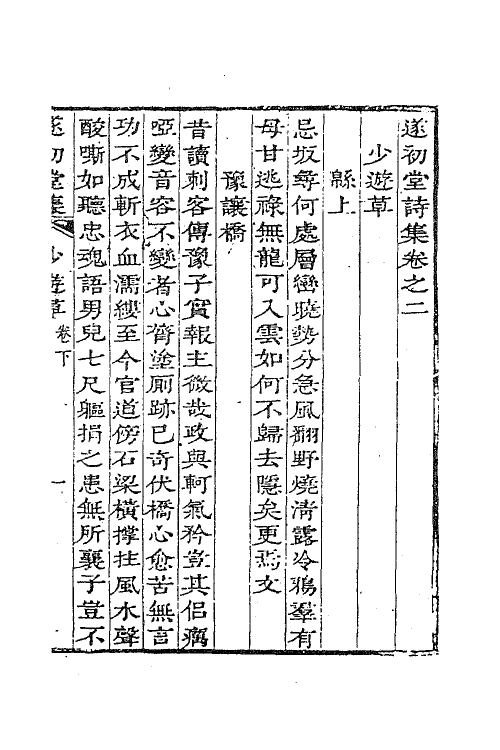 遂初堂詩集卷之二
少遊草
緜上
忌坂尋何處層巒曉勢分急風翻野燒清露冷鴉羣有
母甘逃祿無龍可入雲如何不歸去隱矣更焉文
豫讓橋
昔讀刺客傳豫子實報主微哉政與軻氣矜豈其侶癘
啞變音容不變者心膂塗厠跡已奇伏橋心愈苦無言
功不成斬衣血濡縷至今官道傍石梁橫撐拄風木聲
酸嘶如聽忠魂語男兒七尺軀捐之患無所襄子豈不
遂初堂集 少遊草 卷下 一